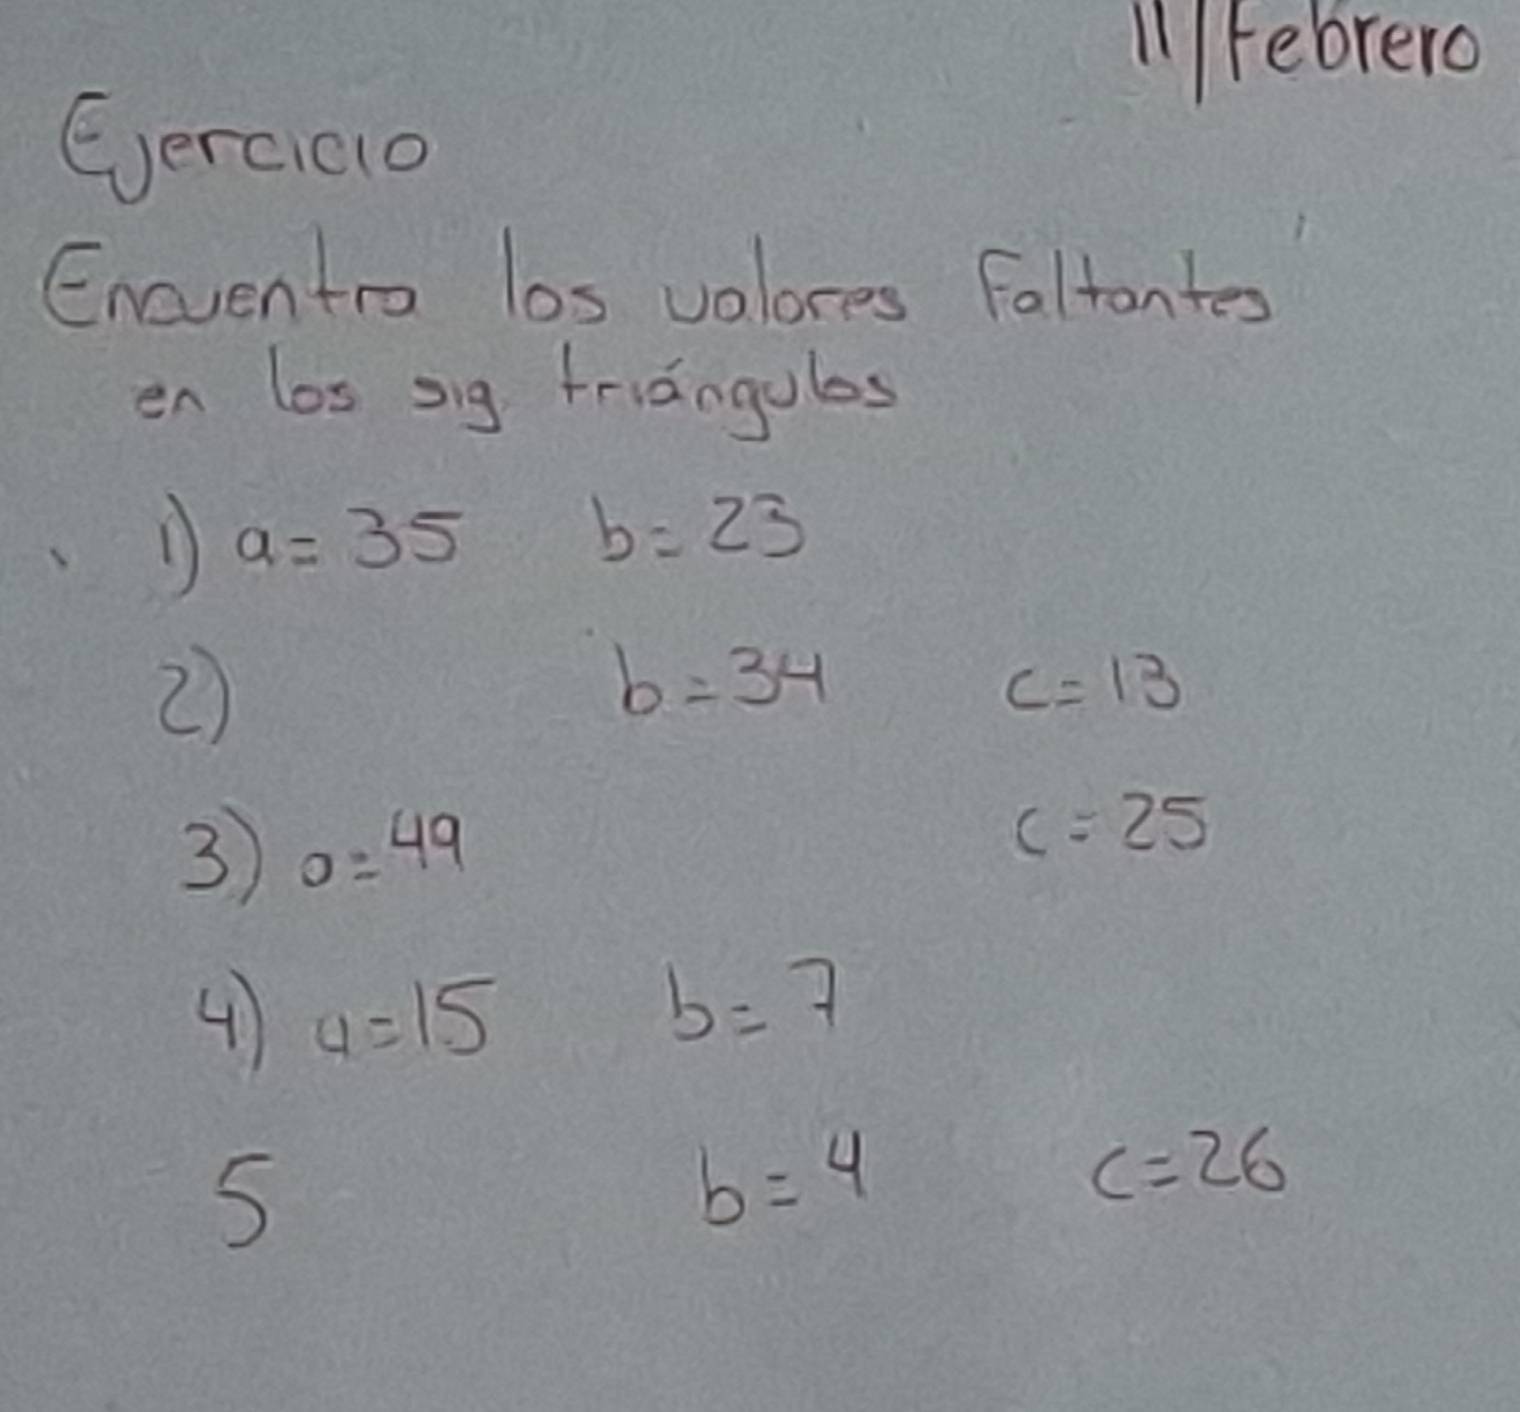 11/Febrero
Ejercicio
Encuentra los valores Faltantes
en los sig. triángulos
1) a= 35 b= 23
2) b= 34 c= 13
3) a= 49 c= 25
4) a=15 b= 7
5 b= 4 c=26